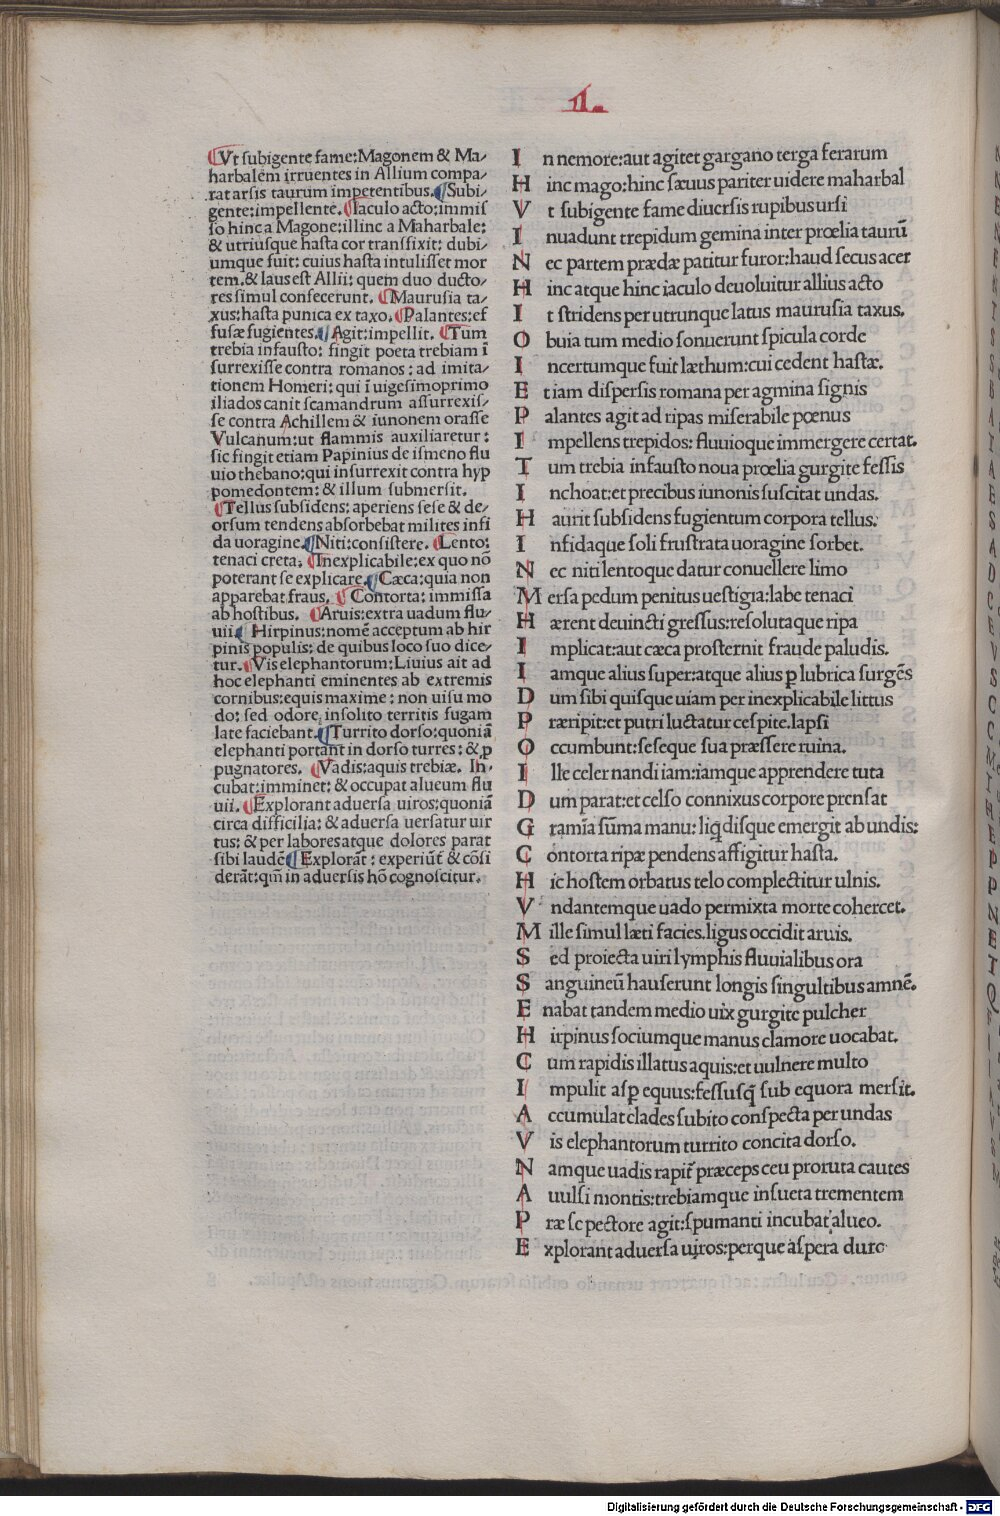 II.
Vt subigente fame:Magonem & Ma/
harbalem irruentes in Allium compa/
rat arsis taurum impetentibus. Subi/
gente:impellente. Iaculo acto:immis
so hinc a Magone:illinc a Maharbale:
& utriusque hasta cor transfixit: dubi/
umque fuit: cuius hasta intulisset mor
tem.& laus est Allii: quem duo ducto/
res simul confecerunt. Maurusia ta/
xus:hasta punica ex taxo. Palantes:ef
fusæ fugientes. Agit:impellit. Tum
trebia infausto: fingit poeta trebiam ī
surrexisse contra romanos: ad imita/
tionem Homeri: qui ī uigesimoprimo
iliados canit scamandrum assurrexis/
se contra Achillem & iunonem orasse
Vulcanum:ut flammis auxiliaretur:
sic fingit etiam Papinius de ismeno flu
uio thebano:qui insurrexit contra hyp
pomedontem: & illum submersit.
Tellus subsidens: aperiens sese & de/
orsum tendens absorbebat milites infi
da uoragine. Niti:consistere. Lento:
tenaci creta. Inexplicabile:ex quo nō
poterant se explicare. Cæca:quia non
apparebat fraus. Contorta: immissa
ab hostibus. Aruis:extra uadum flu/
uii. Hirpinus:nomē acceptum ab hir
pinis populis: de quibus loco suo dice/
tur. Vis elephantorum:Liuius ait ad
hoc elephanti eminentes ab extremis
cornibus:equis maxime: non uisu mo
do: sed odore insolito territis fugam
late faciebant. Turrito dorso:quoniā
elephanti portant in dorso turres: & ꝓ
pugnatores. Vadis:aquis trebiæ. In/
cubat:imminet: & occupat alueum flu
uii. Explorant aduersa uiros:quoniā
circa difficilia: & aduersa uersatur uir
tus: & per labores atque dolores parat
sibi laudē. Explorāt : experiūt̄ & cōsi
derāt:qm̄ in aduersis hō cognoscitur.
I n nemore:aut agitet gargano terga ferarum
H inc mago:hinc sæuus pariter uidere maharbal
V t subigente fame diuersis rupibus ursi
I nuadunt trepidum gemina inter prœlia taurū
N ec partem prædæ patitur furor:haud secus acer
H inc atque hinc iaculo deuoluitur allius acto
I t stridens per utrunque latus maurusia taxus.
O buia tum medio sonuerunt spicula corde
I ncertumque fuit læthum:cui cedent hastæ.
E t iam dispersis romana per agmina signis
P alantes agit ad ripas miserabile pœnus
I mpellens trepidos: fluuioque immergere certat.
T um trebia infausto noua prœlia gurgite fessis
I nchoat:et precibus iunonis suscitat undas.
H aurit subsidens fugientum corpora tellus.
I nfidaque soli frustrata uoragine sorbet.
N ec niti lentoque datur conuellere limo
M ersa pedum penitus uestigia:labe tenaci
H ærent deuincti gressus:resolutaque ripa
I mplicat:aut cæca prosternit fraude paludis.
I amque alius super:atque alius ꝑ lubrica surgēs
D um sibi quisque uiam per inexplicabile littus
P ræripit:et putri luctatur cespite.lapsi
O ccumbunt:seseque sua præssere ruina.
I lle celer nandi iam:iamque apprendere tuta
D um parat:et celso connixus corpore prensat
G ramīa sūma manu: liqdisque emergit ab undis:
C ontorta ripæ pendens affigitur hasta.
H ic hostem orbatus telo complectitur ulnis.
V ndantemque uado permixta morte cohercet.
M ille simul læti facies.ligus occidit aruis.
S ed proiecta uiri lymphis fluuialibus ora
S anguineū hauserunt longis singultibus amnē.
E nabat tandem medio uix gurgite pulcher
H irpinus sociumque manus clamore uocabat.
C um rapidis illatus aquis:et uulnere multo
I mpulit asꝑ equus:fessusq̃ sub equora mersit.
A ccumulat clades subito conspecta per undas
V is elephantorum turrito concita dorso.
N amque uadis rapit̄ præceps ceu proruta cautes
A uulsi montis:trebiamque insueta trementem
P ræ se pectore agit:spumanti incubat alueo.
E xplorant aduersa uiros:perque aspera duro
Digitalisierung gefördert durch die Deutsche Forschungsgemeinschaft - DFG